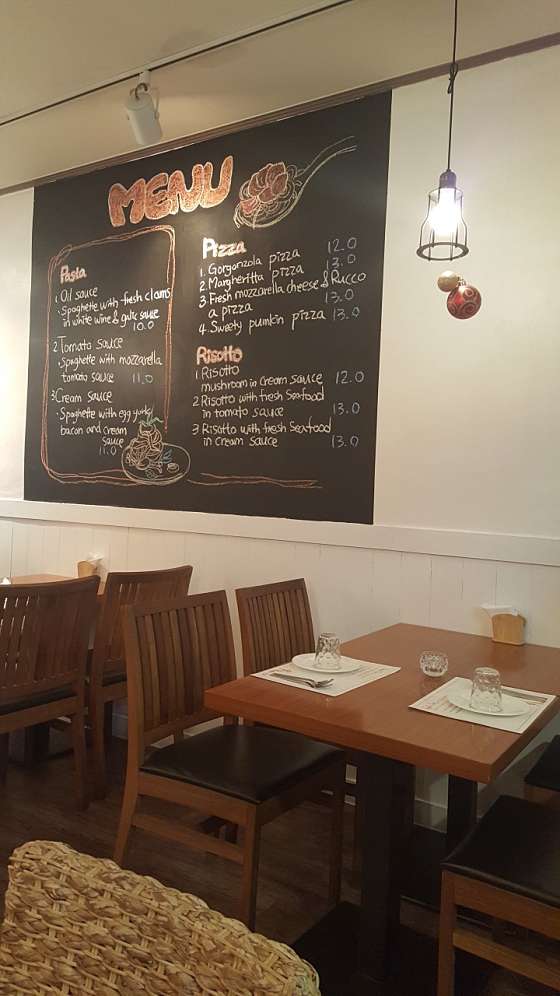 MENU
Pasta
1. Oil sauce
. Spaghette with fresh clams
in white wine & garlic sauce
10.0
2 Tomato sauce
. Spaghette with mozzarella
tomato sauce 11.0
3 Cream sauce
. Spaghette with egg yunk,
bacon and cream
sauce
11.0
Pizza
1. Gorgonzola pizza 12.0
2. Margheritta pizza 13.0
3. Fresh mozzarella cheese & Rucco
a pizza 13.0
4. Sweety pumkin pizza 13.0
Risotto
1 Risotto
mushroom in cream sauce 12.0
2 Risotto with fresh seafood
in tomato sauce 13.0
3 Risotto with fresh seafood
in cream sauce 13.0